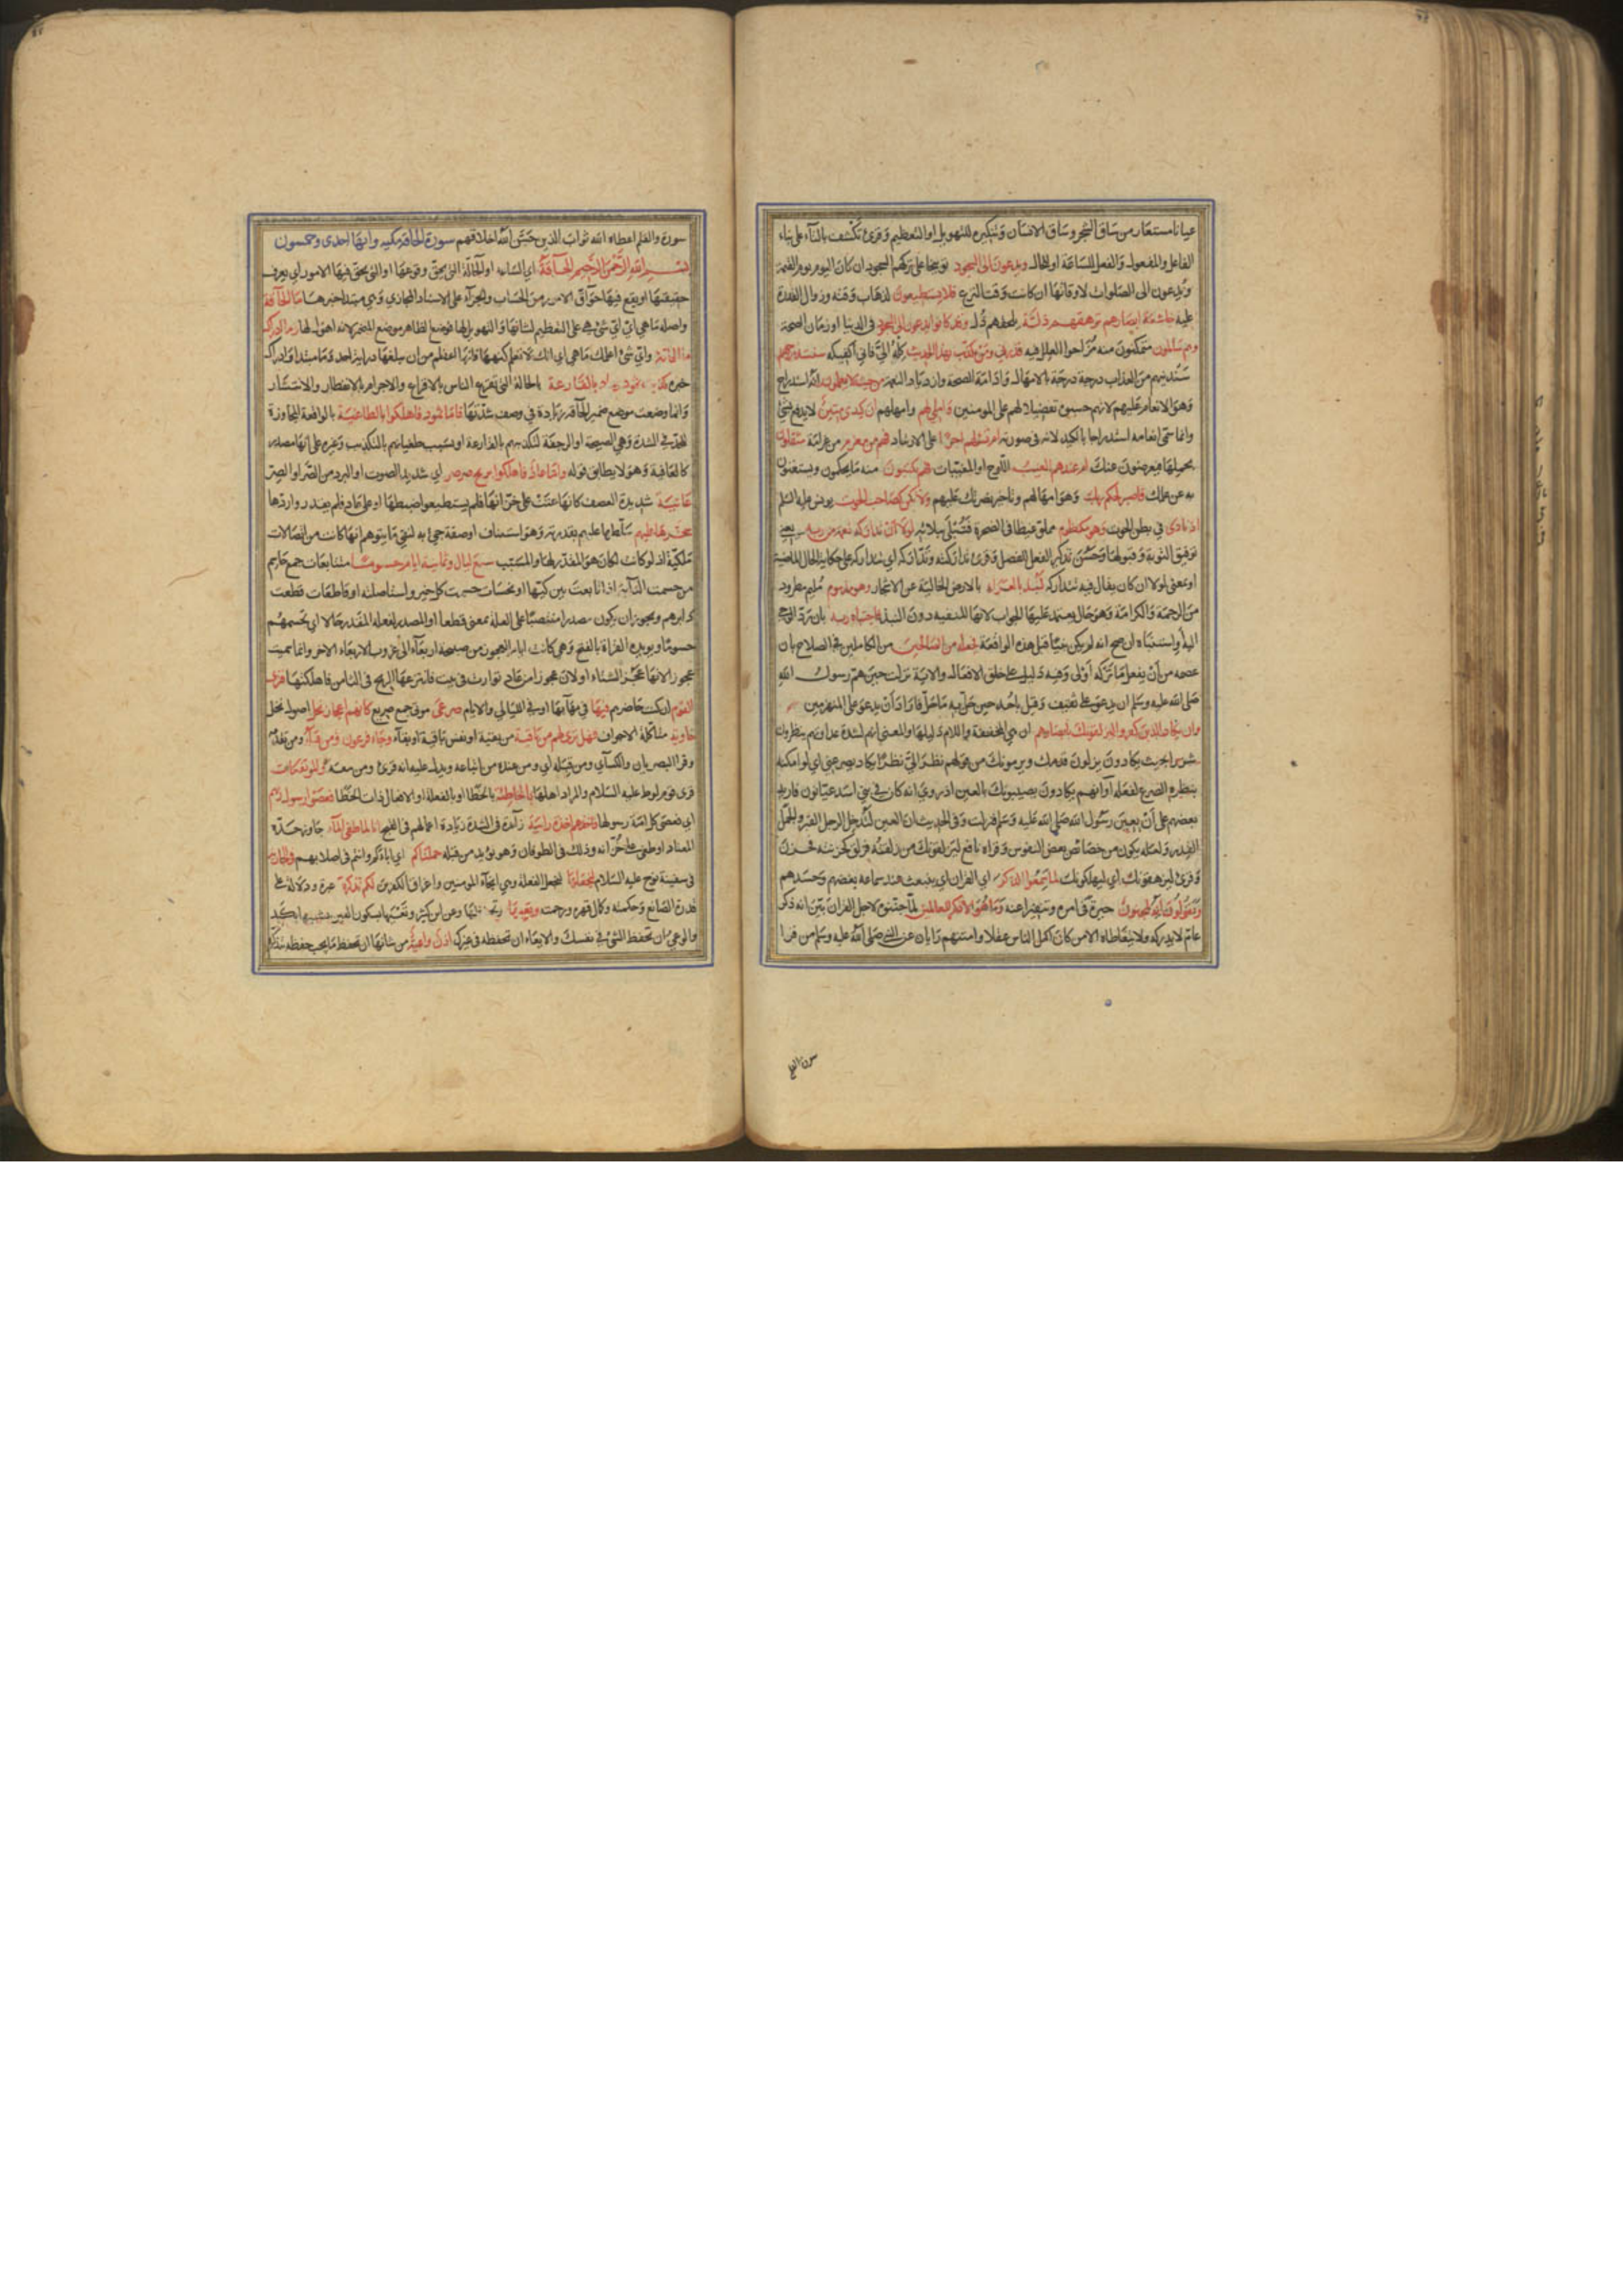 عيانا مستعار من ساق الشجر وساق الانسان وتنكيره للتهويل او التعظيم وقرئ تكشف بالتاء على بناء
الفاعل والمفعول والفعل للساعة او الحال ويدعون الى السجود توبيخا على تركهم السجود ان كان اليوم يوم القيمة
او يدعون الى الصلوات لاوقاتها ان كانت وقت النزع فلا يستطيعون لذهاب وقته وزوال القدرة
عليه خاشعة ابصارهم ترهقهم ذلة يلحقهم ذل وقد كانوا يدعون الى السجود في الدنيا او زمان الصحة
وهم سالمون متمكنون منه مزاحوا العلل فيه فذرني ومن يكذب بهذا الحديث كله الي فاني اكفيكه سنستدرجهم
سندنيهم من العذاب درجة درجة بالامهال وادامة الصحة وازدياد النعمة من حيث لا يعلمون انه استدراج
وهو الانعام عليهم لانهم حسبوه تفضيلا لهم على المومنين واملي لهم وامهلهم ان كيدي متين لا يدفع بشئ
وانما سمى انعامه استدراجا بالكيد لانه في صورته ام تسئلهم اجرا على الارشاد فهم من مغرم من غرامة مثقلون
بحملها فيعرضون عنك ام عندهم الغيب اللوح او المغيبات فهم يكتبون منه ما يحكمون ويستغنون
به عن علمك فاصبر لحكم ربك وهو امهالهم وتاخير نصرتك عليهم ولا تكن كصاحب الحوت يونس عليه السلم
اذ نادى في بطن الحوت وهو مكظوم مملو غيظا في الضجرة فتبتلى ببلائه لولا ان تداركه نعمة من ربه يعني
توفيق التوبة وقبولها وحسن تذكير الفعل للفصل وقرئ تداركته وتداركه اي تتداركه على حكاية الحال الماضية
او بمعنى لولا ان كان يقال فيه تتداركه لنبذ بالعراء بالارض الخالية عن الاشجار وهو مذموم مليم مطرود
من الرحمة والكرامة وهو حال يعتمد عليها الجواب لانها المنفية دون النبذ فاجتباه ربه بان رد الوحي
اليه او استنباه ان صح انه لم يكن نبيا قبل هذه الواقعة فجعله من الصالحين من الكاملين في الصلاح بان
عصمه من ان يفعل ما تركه اولى وفيه دليل على خلق الافعال والاية نزلت حين هم رسول الله
صلى الله عليه وسلم ان يدعو على ثقيف وقيل باحد حين حل به ما حل فاراد ان يدعو على المنهزمين
وان يكاد الذين كفروا ليزلقونك بابصارهم ان هي المخففة واللام دليلها والمعنى انهم لشدة عداوتهم ينظرون
شزرا بحيث يكادون يزلون قدمك ويرمونك من قولهم نظر الي نظرا يكاد يصرعني اي لو امكنه
بنظره الصرع لفعله او انهم يكادون يصيبونك بالعين اذ روي انه كان في بني اسد عيانون فاراد
بعضهم على ان يعين رسول الله صلى الله عليه وسلم فنزلت وفي الحديث ان العين لتدخل الرجل القبر والجمل
القدر ولعله يكون من خصائص بعض النفوس وقراه نافع ليزلقونك من زلقته فزلق كحزنته فحزن
وقرئ ليزهقونك اي ليهلكونك لما سمعوا الذكر اي القران اي ينبعث عند سماعه بغضهم وحسدهم
ويقولون انه لمجنون حيرة في امره وتنفيرا عنه وما هو الا ذكر للعالمين لما جننوه لاجل القران بين انه ذكر
عام لا يدركه ولا يتعاطاه الا من كان اكمل الناس عقلا وامتنهم رايا عن النبي صلى الله عليه وسلم من قرا
سورة والقلم اعطاه الله ثواب الذين حسن الله اخلاقهم سورة الحاقة مكية وايها احدى وخمسون
بسم الله الرحمن الرحيم الحاقة اي الساعة او الحالة التي يحق وقوعها او التي يحق فيها الامور اي يعرف
حقيقتها او يقع فيها حواق الامور من الحساب والجزاء على الاسناد المجازي وهي مبتدا خبرها ما الحاقة
واصله ما هي اي اي شئ هي على التعظيم لشانها والتهويل لها فوضع الظاهر موضع المضمر لانه اهول لها وما ادريك
ما الحاقة واي شئ اعلمك ما هي اي انك لا تعلم كنهها فانها اعظم من ان يبلغها دراية احد وما مبتدا وادراك
خبره كذبت ثمود وعاد بالقارعة بالحالة التي تقرع الناس بالافزاع والاجرام بالانفطار والانتشار
وانما وضعت موضع ضمير الحاقة زيادة في وصف شدتها فاما ثمود فاهلكوا بالطاغية بالواقعة المجاوزة
للحد في الشدة وهي الصيحة او الرجفة لتكذيبهم بالقارعة او بسبب طغيانهم بالتكذيب وغيره على انها مصدر
كالعافية وهو لا يطابق قوله واما عاد فاهلكوا بريح صرصر اي شديد الصوت او البرد من الصر او الصر
عاتية شديدة العصف كانها عتت على خزانها فلم يستطيعوا ضبطها او على عاد فلم يقدروا ردها
سخرها عليهم سلطها عليهم بقدرته وهو استيناف او صفة جئ به لنفي ما يتوهم انها كانت من اتصالات
فلكية اذ لو كانت لكان هو المقدر لها والمسبب سبع ليال وثمانية ايام حسوما متتابعات جمع حاسم
من حسمت الدابة اذا تابعت بين كيها او نحسات حسمت كل خير واستاصلته او قاطعات قطعت
دابرهم ويجوز ان يكون مصدرا منتصبا على العلة بمعنى قطعا او المصدر لفعله المقدر حالا اي تحسمهم
حسوما ويويده القراة بالفتح وهي كانت ايام العجوز من صبيحة اربعاء الى غروب الاربعاء الاخر وانما سميت
عجوزا لانها عجز الشتاء او لان عجوزا من عاد توارت في بيت فانتزعها الريح في الثامن فاهلكتها فترى
القوم ان كنت حاضرهم فيها في مهابها او في الليالي والايام صرعى موتى جمع صريع كانهم اعجاز نخل اصول نخل
خاوية متاكلة الاجواف فهل ترى لهم من باقية من بقية او نفس باقية او بقاء وجاء فرعون ومن قبله ومن تقدمه
وقرا البصريان والكسائي ومن قبله اي ومن عنده من اتباعه ويدل عليه انه قرئ ومن معه والمؤتفكات
قرى قوم لوط عليه السلام والمراد اهلها بالخاطئة بالخطا او بالفعلة او الافعال ذات الخطا فعصوا رسول ربهم
اي فعصى كل امة رسولها فاخذهم اخذة رابية زائدة في الشدة زيادة اعمالهم في القبح انا لما طغى الماء جاوز حده
المعتاد او طغى على خزانه وذلك في الطوفان وهو يؤيد من قبله حملناكم اي اباءكم وانتم في اصلابهم في الجارية
في سفينة نوح عليه السلام لنجعلها لنجعل الفعلة وهي انجاء المومنين واغراق الكفرة لكم تذكرة عبرة ودلالة على
قدرة الصانع وحكمته وكمال قهره ورحمته وتعيها وتحفظها وعن ابن كثير وتعيها بسكون العين تشبيها بكتف
والوعي ان تحفظ الشئ في نفسك والايعاء ان تحفظه في غيرك اذن واعية من شانها ان تحفظ ما يجب حفظه بتذكره